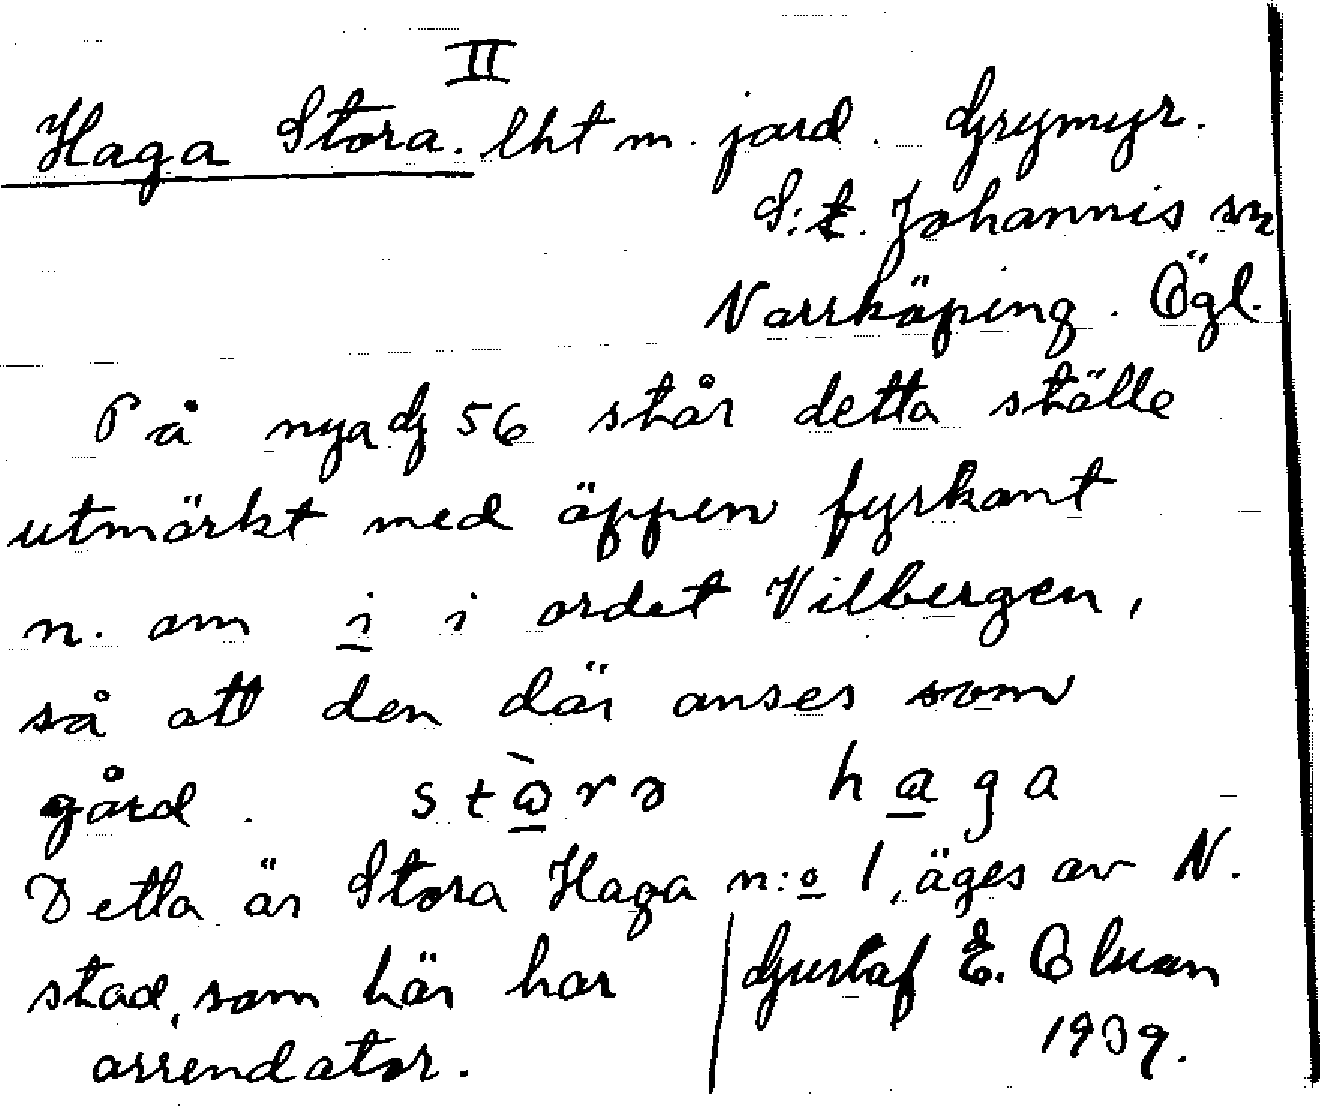 II
Haga Stora. lht m. jord. Grymyr.
S:t. Johannis sn
Norrköping. Ögl.
På nya G 56 står detta ställe
utmärkt med öppen fyrkant
n. om i i ordet Vilbergen,
så att den där anses som
gård. haga
Detta är Stora Haga n:o 1, äges av N.
stad, som här har
arrendator.
Gustaf E.
1939.